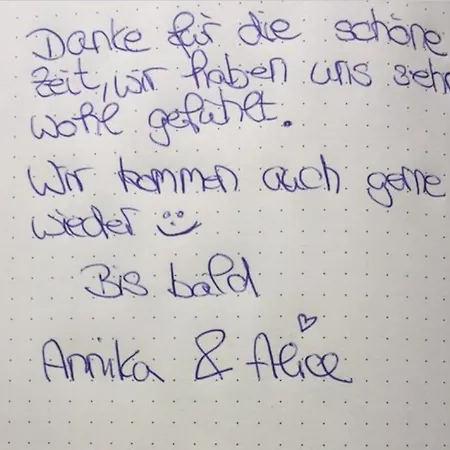 Danke für die schöne
Zeit, wir haben uns sehr
wohl gefühlt.
Wir kommen auch gerne
wieder ☺
Bis bald
Annika & Alice